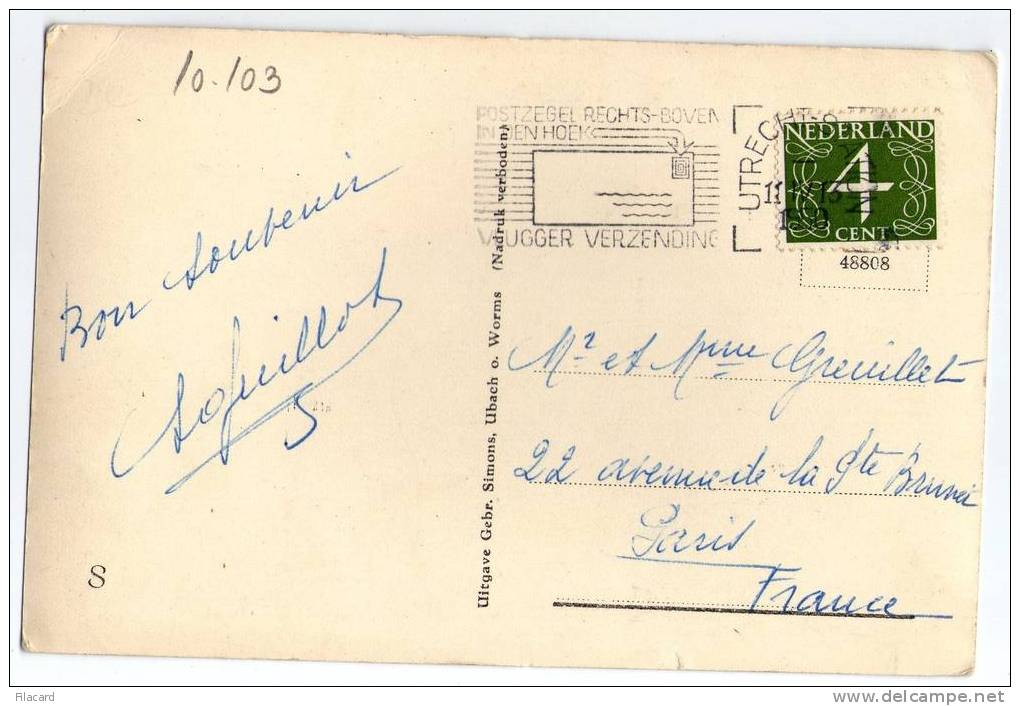 10.103
POSTZEGEL RECHTS-BOVEN
IN DEN HOEK
VLUGGER VERZENDING
UTRECHT
NEDERLAND
4
CENT
48808
Bon souvenir
Guillot
Uitgave Gebr. Simons, Ubach o. Worms (Nadruk verboden)
Mr et Mme Greuillet
22 avenue de la Pte Brunet
Paris
France
S
Filacard
www.delcampe.net